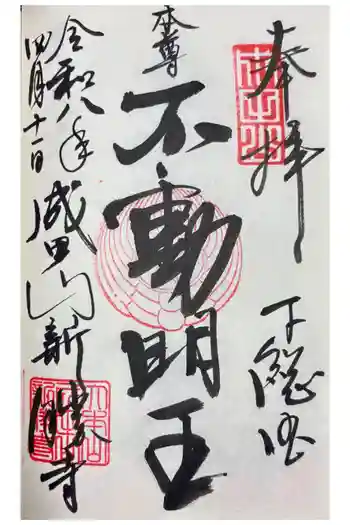 奉拝
下総国
本尊
不動明王
令和八年
四月十一日
成田山新勝寺